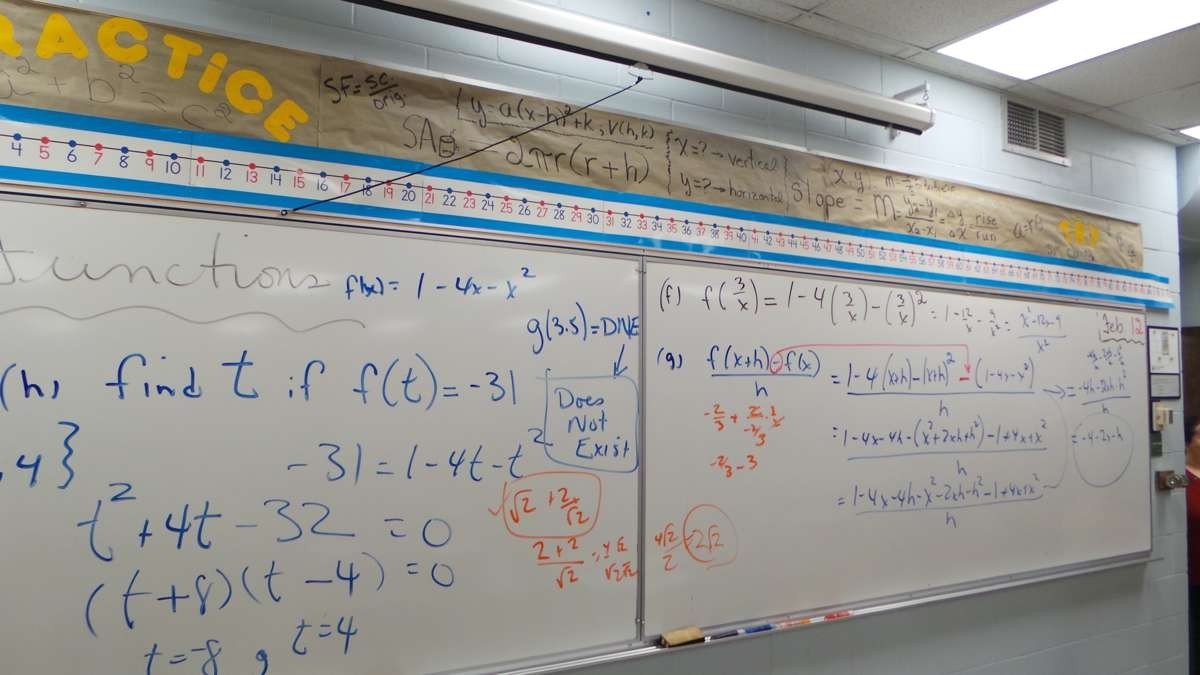 PRACTICE
a² + b² = c²
SF = sc. / orig
{ y = a(x-h)² + k, V(h,k)
SA = 2πr(r+h)
{ x = ? → vertical
y = ? → horizontal
slope = m = y₂-y₁ / x₂-x₁ = Δy / Δx = rise / run
4 5 6 7 8 9 10 11 12 13 14 15 16 17 18 19 20 21 22 23 24 25 26 27 28 29 30 31 32 33 34 35 36 37 38 39 40 41 42 43 44 45 46 47 48 49 50 51 52 53 54 55 56 57 58 59 60
Functions
f(x) = 1 - 4x - x²
g(3.5) = DNE
Does
Not
Exist
(h) find t if f(t) = -31
, 4}
-31 = 1 - 4t - t²
t² + 4t - 32 = 0
(t+8)(t-4) = 0
t = -8, t = 4
√2 + 2/√2
2+2 / √2
4√2 / 2 = 2√2
(f) f(3/x) = 1 - 4(3/x) - (3/x)² = 1 - 12/x - 9/x² = x² - 12x - 9 / x²
Feb. 12
(g) f(x+h) - f(x) / h = 1 - 4(x+h) - (x+h)² - (1-4x-x²) / h
= 1 - 4x - 4h - (x² + 2xh + h²) - 1 + 4x + x² / h
= 1 - 4x - 4h - x² - 2xh - h² - 1 + 4x + x² / h
= -4h - 2xh - h² / h
= -4 - 2x - h
-2/3 - 3